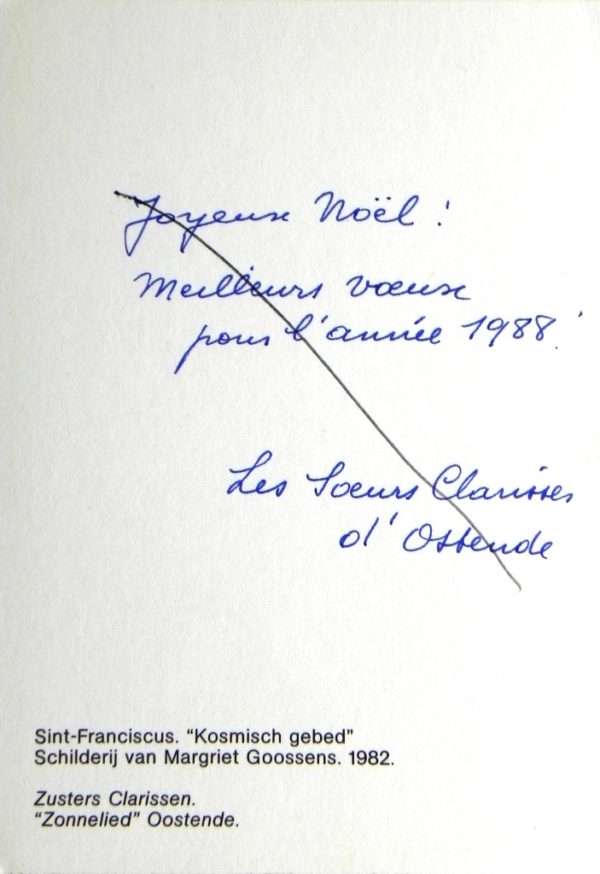 Joyeux Noël !
Meilleurs vœux
pour l'année 1988!
Les Sœurs Clarisses
d'Ostende
Sint-Franciscus. “Kosmisch gebed”
Schilderij van Margriet Goossens. 1982.
Zusters Clarissen.
“Zonnelied” Oostende.